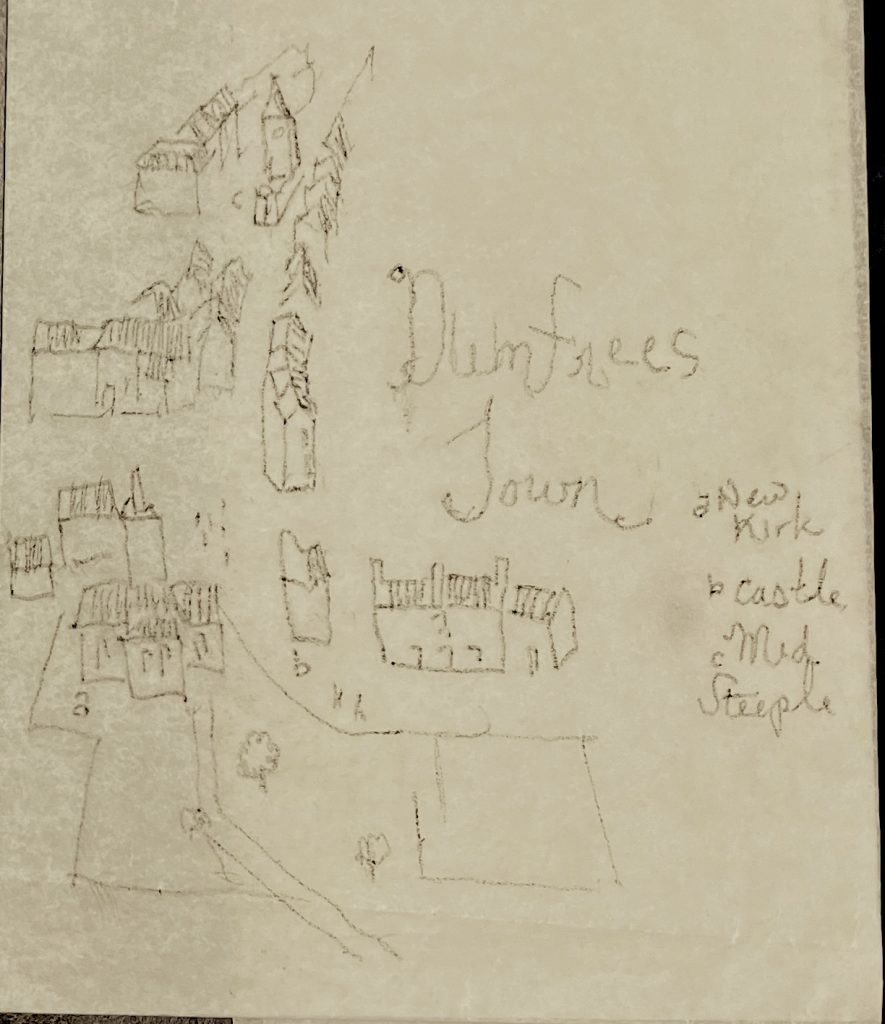 Dumfrees
Town
a New
Kirk
b castle
c Mid
Steeple
c
b
a